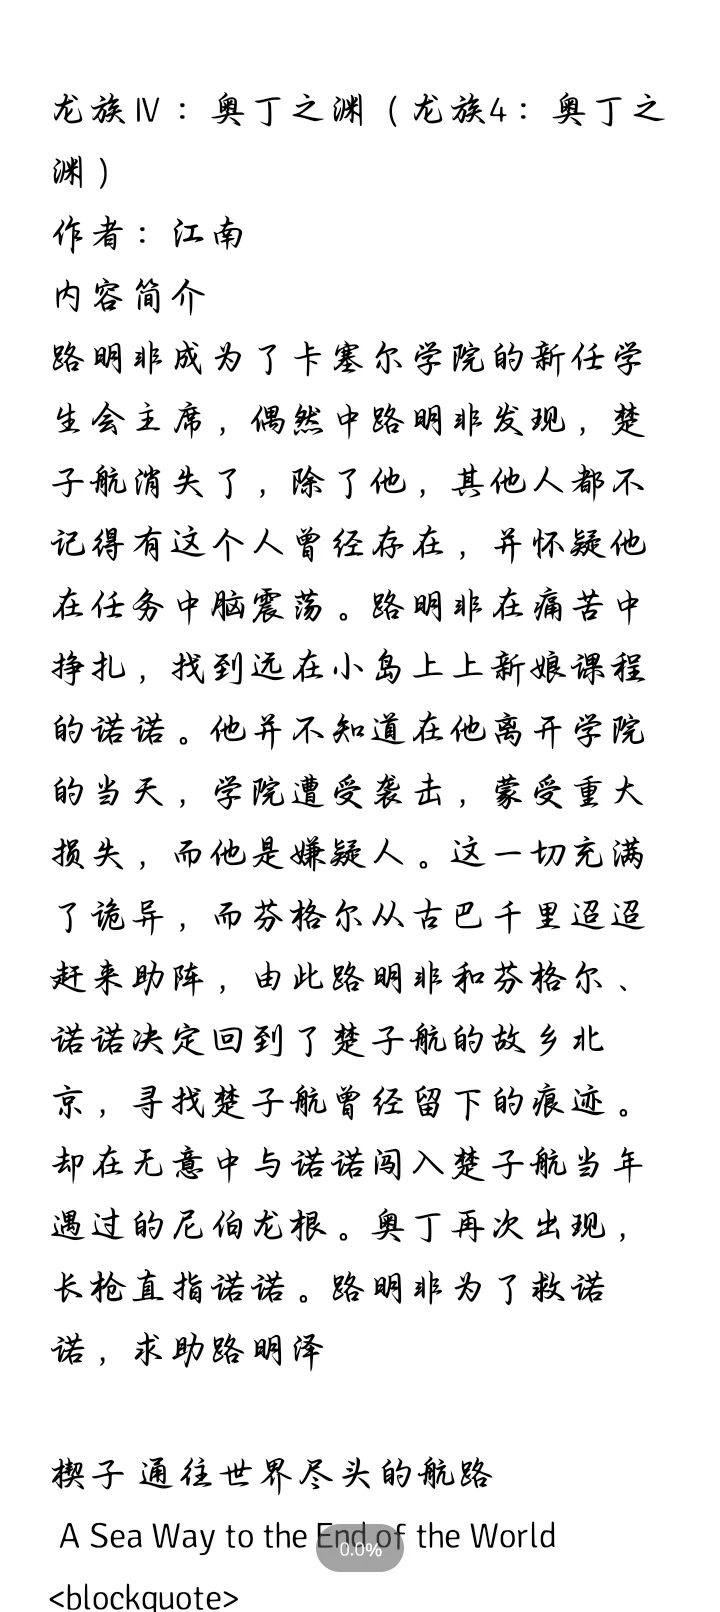 龙族Ⅳ：奥丁之渊（龙族4：奥丁之
渊）
作者：江南
内容简介
路明非成为了卡塞尔学院的新任学
生会主席，偶然中路明非发现，楚
子航消失了，除了他，其他人都不
记得有这个人曾经存在，并怀疑他
在任务中脑震荡。路明非在痛苦中
挣扎，找到远在小岛上上新娘课程
的诺诺。他并不知道在他离开学院
的当天，学院遭受袭击，蒙受重大
损失，而他是嫌疑人。这一切充满
了诡异，而芬格尔从古巴千里迢迢
赶来助阵，由此路明非和芬格尔、
诺诺决定回到了楚子航的故乡北
京，寻找楚子航曾经留下的痕迹。
却在无意中与诺诺闯入楚子航当年
遇过的尼伯龙根。奥丁再次出现，
长枪直指诺诺。路明非为了救诺
诺，求助路明泽
楔子 通往世界尽头的航路
A Sea Way to the End of the World
0.0%
<blockquote>